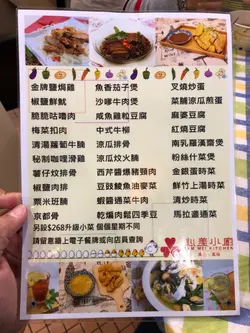 金牌鹽焗雞
椒鹽鮮魷
脆脆咕嚕肉
梅菜扣肉
清湯蘿蔔牛腩
秘制咖喱滑雞
薯仔炆排骨
椒鹽肉排
粟米斑腩
京都骨
魚香茄子煲
沙嗲牛肉煲
咸魚雞粒豆腐
中式牛柳
涼瓜排骨
涼瓜炆火腩
西芹醬爆豬頸肉
豆豉鯪魚油麥菜
蝦醬通菜牛肉
乾煸肉鬆四季豆
叉燒炒蛋
菜脯涼瓜煎蛋
麻婆豆腐
紅燒豆腐
南乳羅漢齋煲
粉絲什菜煲
金銀蛋時菜
鮮竹上湯時菜
清炒時菜
馬拉盞通菜
另設$268升級小菜 個個星期不同
請留意牆上電子餐牌或向店員查詢
小廚
KITCHEN